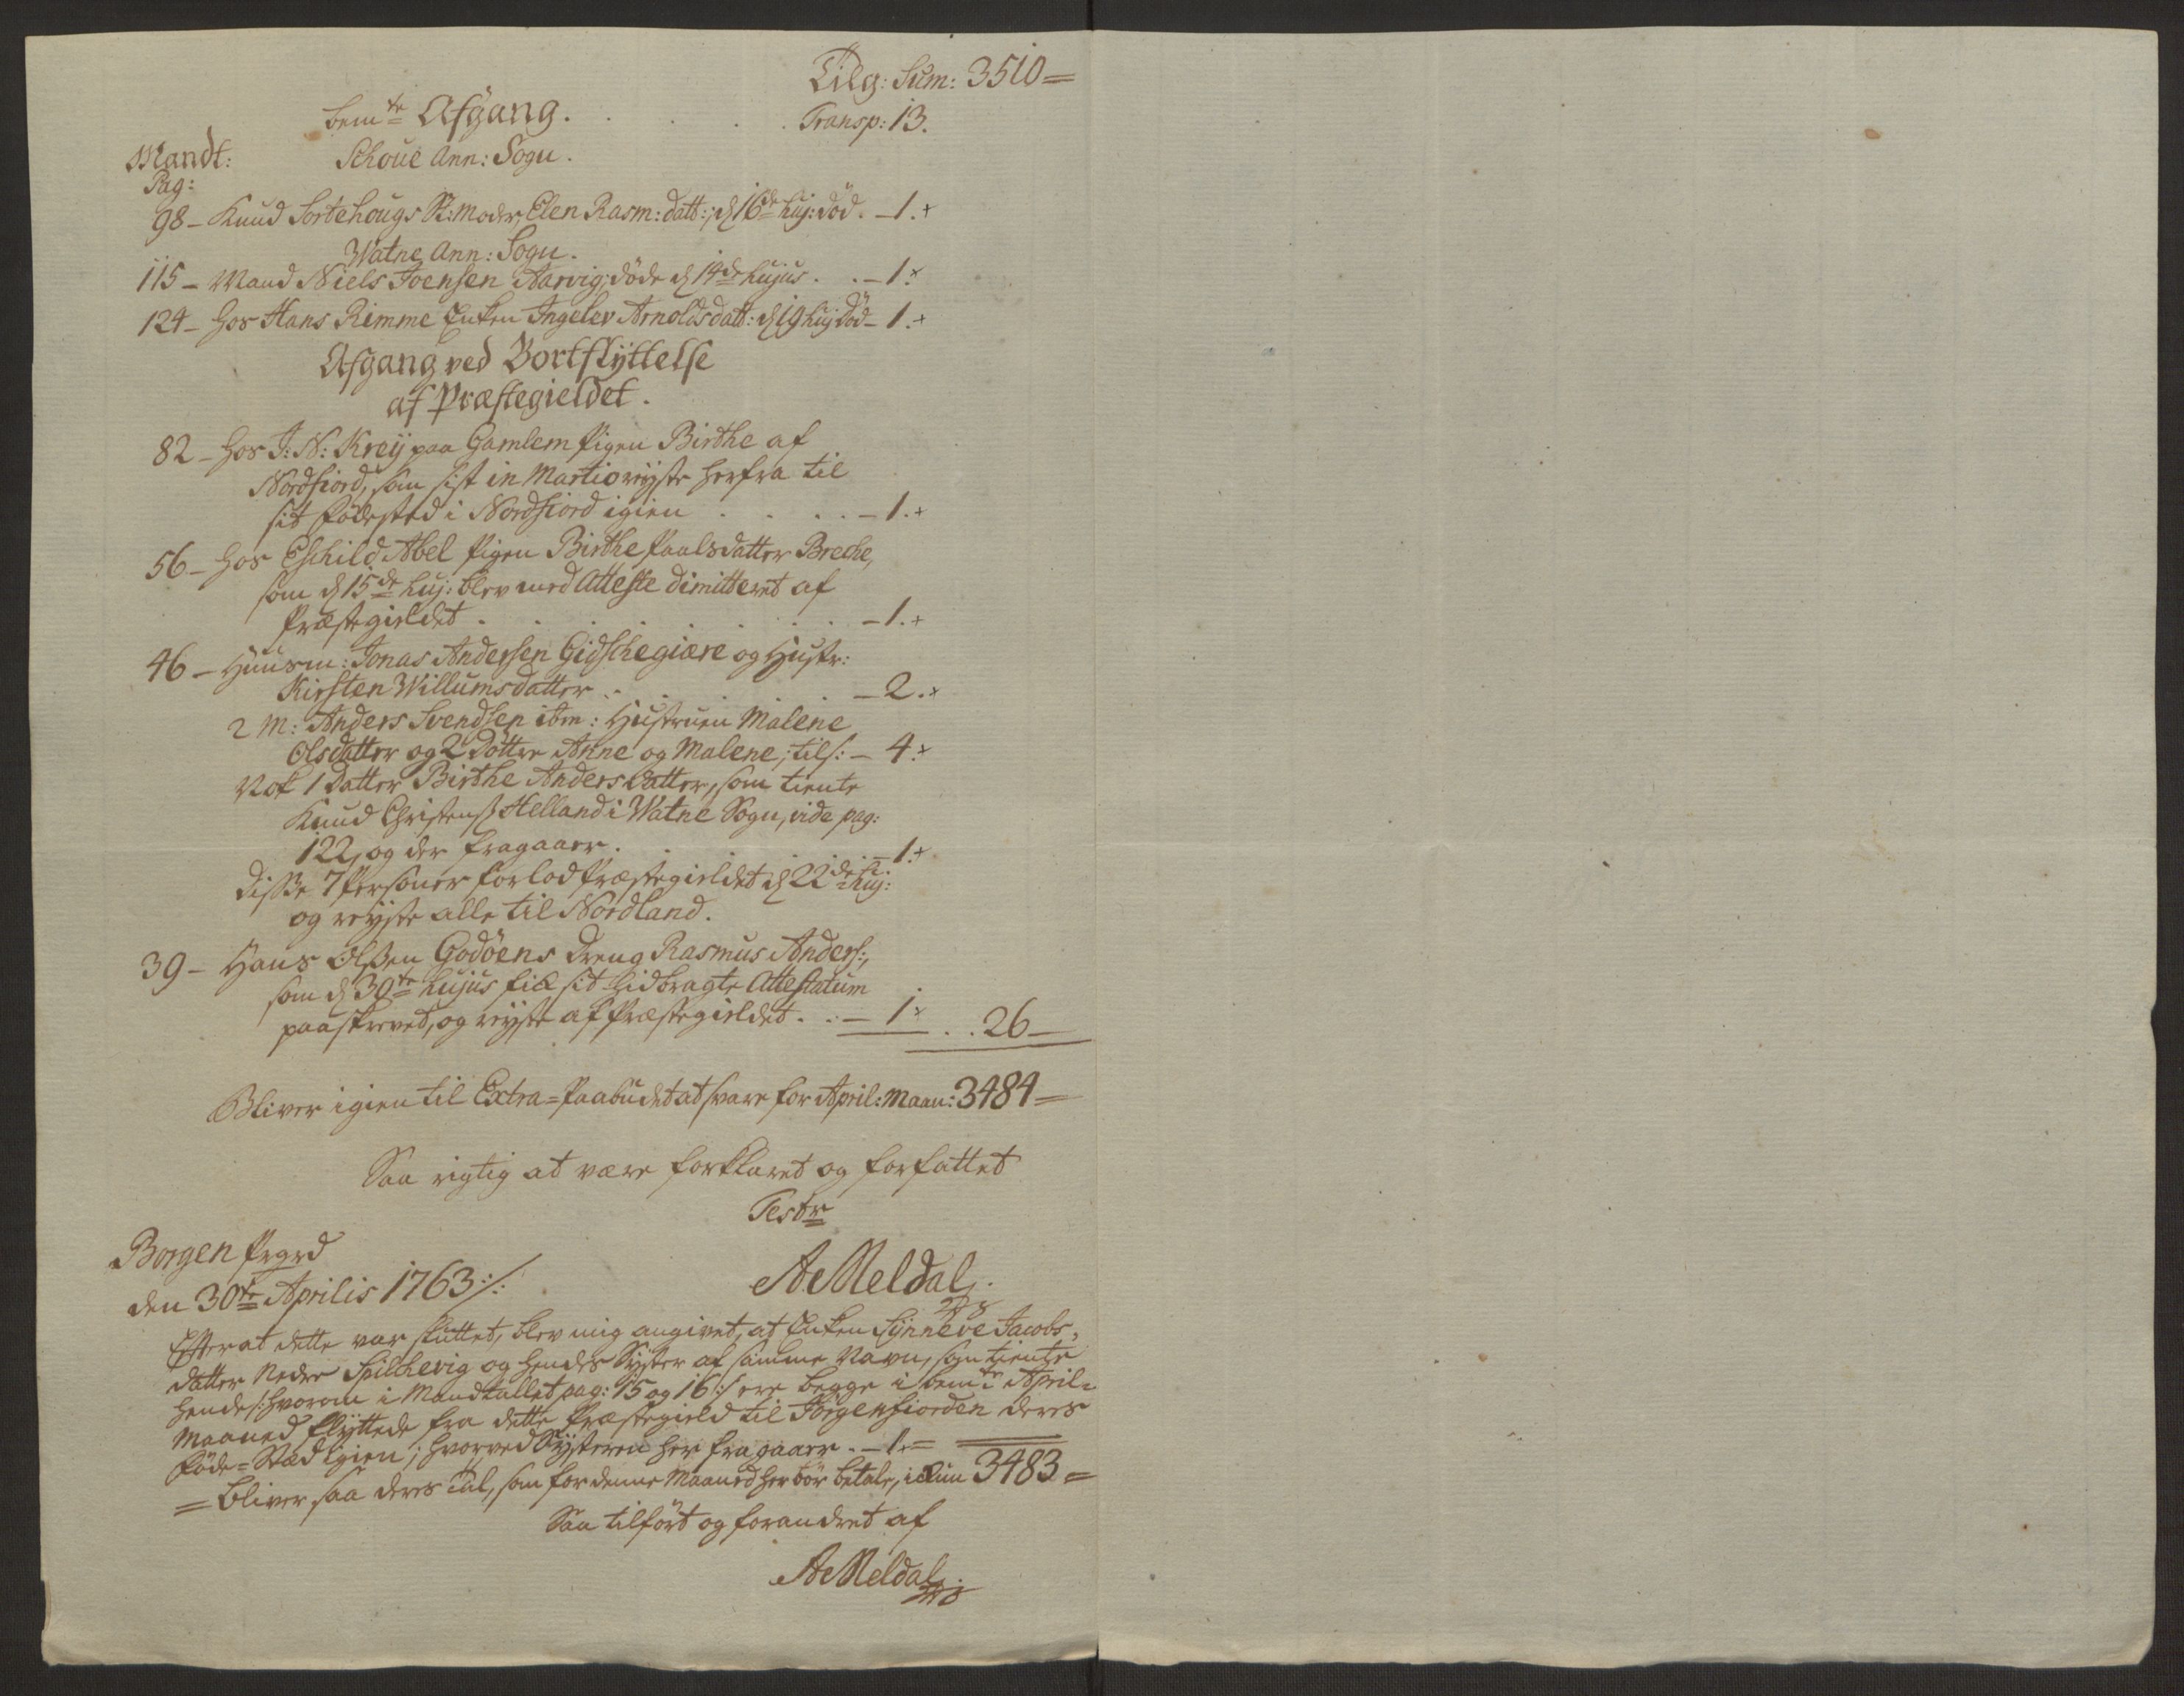 Tilg: Sum: 3510=
bem.te Afgang. . . . . Transp: 13.
Mandt: Schoue Ann: Sogn.
Pag:
98 - Knud Sortehougs St: Moder, Elen Rasm: datt:, d 16de huj: död. - 1.+
Watne Ann: Sogn.
115 - Mand Niels Joensen Aarvig, döde d 14de hujus. . . - 1.+
124 - hos Hans Rimme Enken Ingelev Arnoldsdatt: d 19 huj död - 1.+
Afgang ved Bortflyttelse
af Præstegieldet.
82 - hos J: N: Kreij paa Gamlem Pigen Birthe af
Nordfiord, som sist in Martio reyste herfra til
sit födested i Nordfiord igien . . . . - 1.+
56 - hos Eschild Abel Pigen Birthe Paalsdatter Breche,
som d 15de huj: blev med Atteste dimitteret af
Præstegieldet . . . . . . - 1.+
46 - Huusm: Jonas Andersen Gidschegiære og Hustr:
Kirsten Willumsdatter . . . . . - 2.+
2 M: Anders Svendsen ibm: Hustruen Malene
Olsdatter og 2 Döttre Anne og Malene; tils: - 4.+
Nok 1 Datter Birthe Andersdatter, som tiente
Knud Christens Helland i Watne Sogn, vide pag:
122, og der fragaaer. . . . . - 1.+
Disse 7 Personer forlod Præstegieldet d 22de huj:
og reyste alle til Nordland.
39 - Hans Olssen Godöens Dreng Rasmus Anders:,
som d 30te hujus fik sit hidbragte Attestatum
paaskrevet, og reyste af Præstegieldet. . - 1+ . . 26 -
Bliver igien til Extra=Paabudet at svare for April: Maan: 3484 =
Saa rigtig at være forklaret og forfattet
Tester
Borgen Prgrd
den 30te Aprilis 1763 ./.
A Meldal
Efterat dette var sluttet, blev mig angivet, at Enken Synneve Jacobs-
datter Nedre Spilchevig og hendes Syster af samme Navn, som tiente
hende /: hvorom i Mandtallet pag: 15 og 16 :/ ere begge i bemte April-
Maaned flyttede fra dette Præstegield til Jörgenfiorden deres
föde=Stæd igien; hvorved Systeren her fragaaer. - 1.=
= bliver saa deres Tal, som for denne Maaned her bör betale, ickun 3483 =
Saa tilfört og forandret af
A Meldal